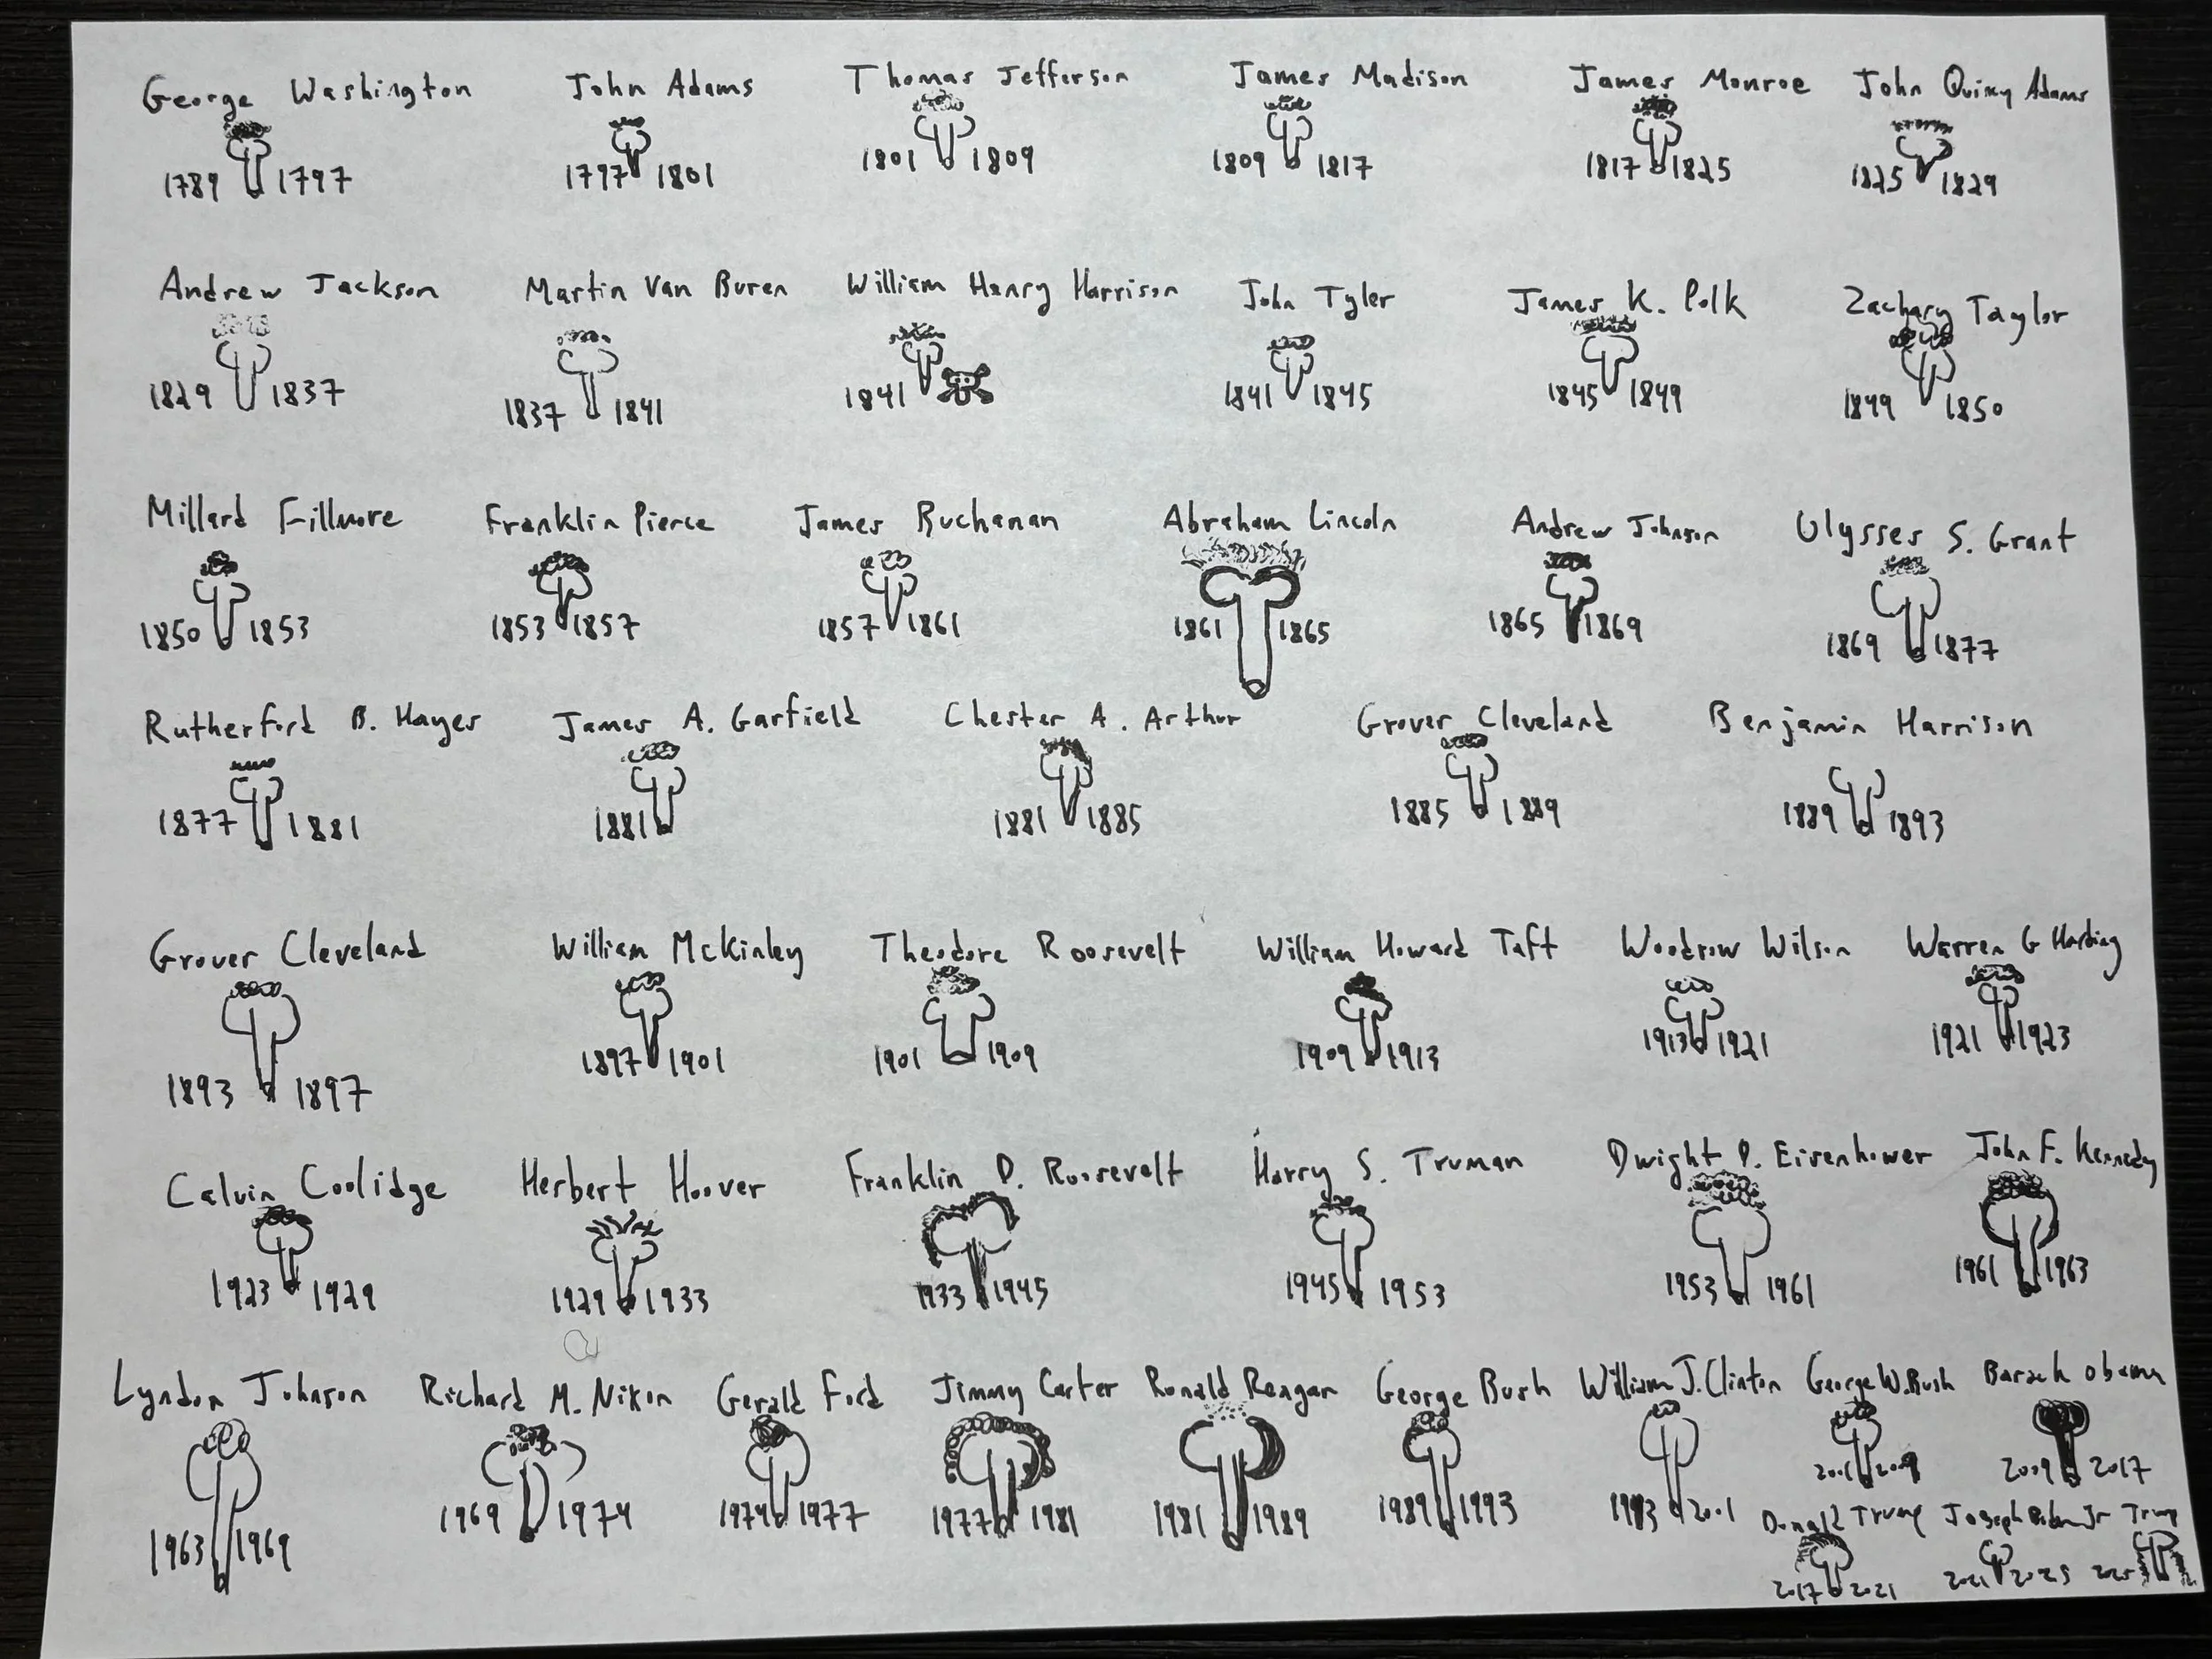 George Washington John Adams Thomas Jefferson James Madison James Monroe John Quincy Adams
1789 1797 1797 1801 1801 1809 1809 1817 1817 1825 1825 1829
Andrew Jackson Martin Van Buren William Henry Harrison John Tyler James K. Polk Zachary Taylor
1829 1837 1837 1841 1841 1841 1845 1845 1849 1849 1850
Millard Fillmore Franklin Pierce James Buchanan Abraham Lincoln Andrew Johnson Ulysses S. Grant
1850 1853 1853 1857 1857 1861 1861 1865 1865 1869 1869 1877
Rutherford B. Hayes James A. Garfield Chester A. Arthur Grover Cleveland Benjamin Harrison
1877 1881 1881 1881 1885 1885 1889 1889 1893
Grover Cleveland William McKinley Theodore Roosevelt William Howard Taft Woodrow Wilson Warren G Harding
1893 1897 1897 1901 1901 1909 1909 1913 1913 1921 1921 1923
Calvin Coolidge Herbert Hoover Franklin D. Roosevelt Harry S. Truman Dwight D. Eisenhower John F. Kennedy
1923 1929 1929 1933 1933 1945 1945 1953 1953 1961 1961 1963
Lyndon Johnson Richard M. Nixon Gerald Ford Jimmy Carter Ronald Reagan George Bush William J. Clinton George W. Bush Barack Obama
1963 1969 1969 1974 1974 1977 1977 1981 1981 1989 1989 1993 1993 2001 2001 2009 2009 2017
Donald Trump Joseph Biden Jr Trump
2017 2021 2021 2025 2025